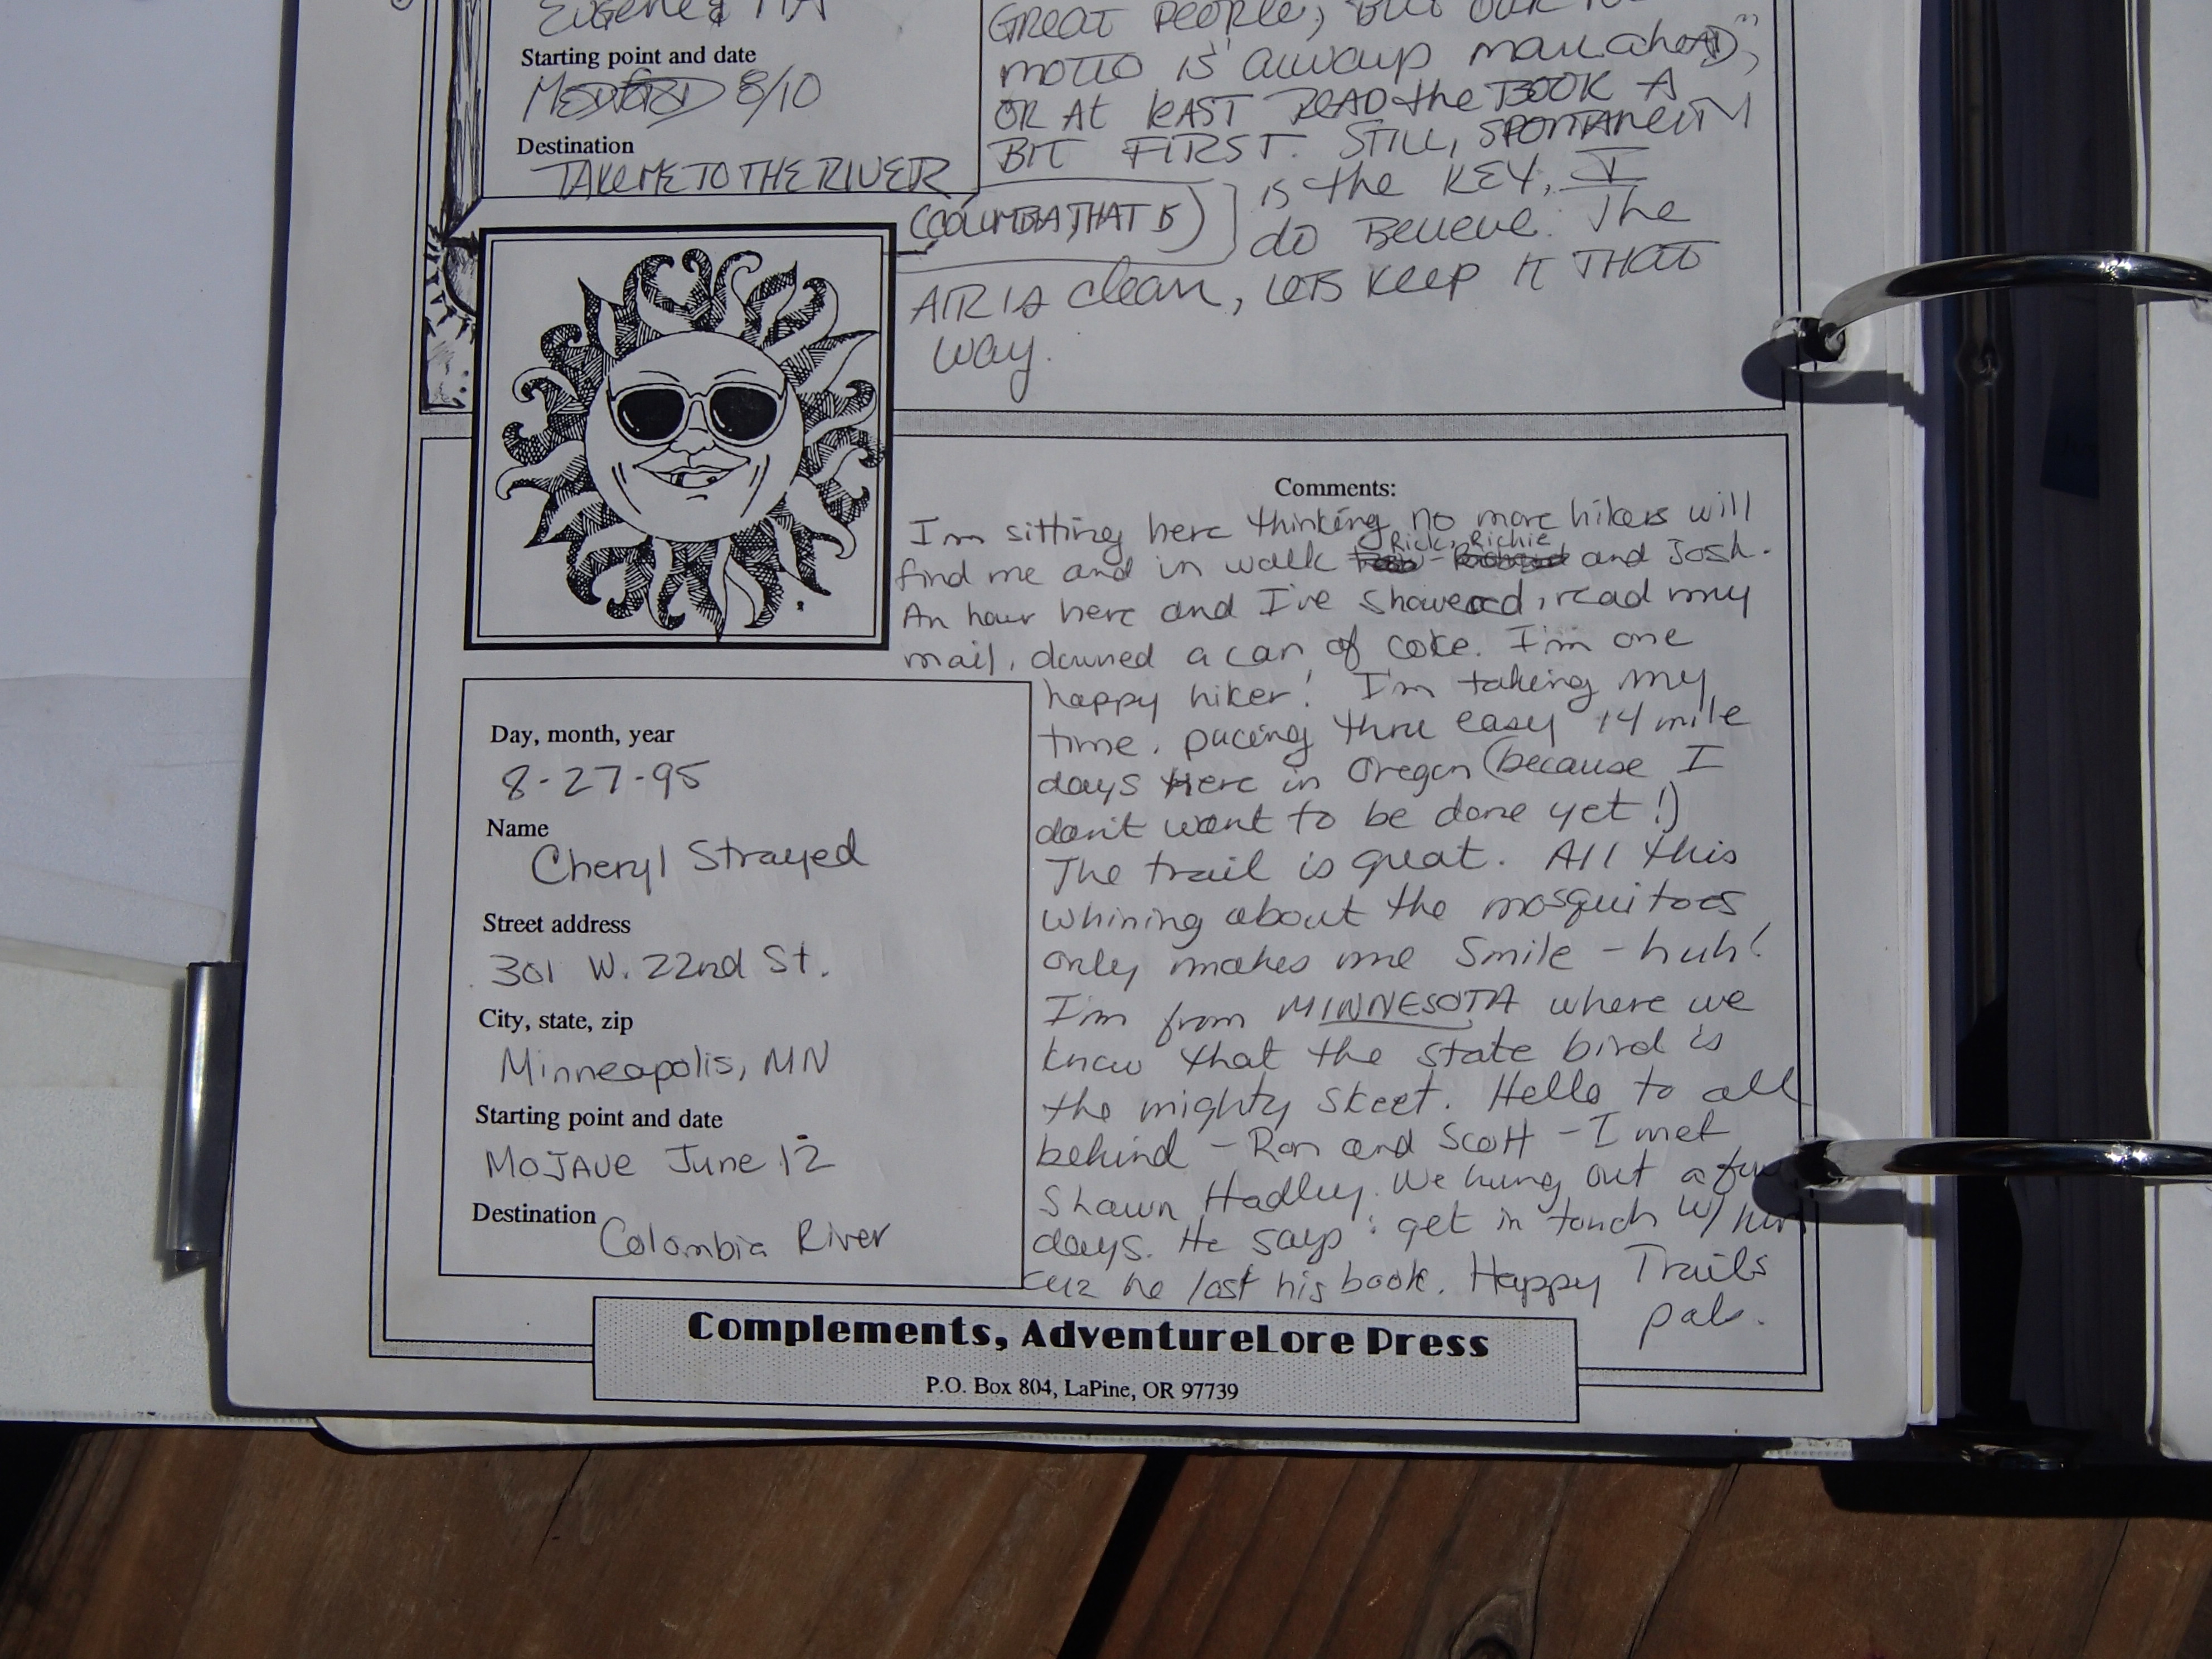 Eugene,
Starting point and date
MEDFORD 8/10
Destination
TAKE ME TO THE RIVER
(COLUMBIA, THAT IS)
GREAT PEOPLE, BUT OUR
MOTTO IS "ALWAYS MAIL AHEAD",
OR At LEAST READ the BOOK A
BIT FIRST. STILL, SPONTANEITY
is the KEY, I
do BELIEVE. The
AIR is clean, LETS KEEP IT THAT
way.
Comments:
I'm sitting here thinking no more hikers will
find me and in walk Rick, Richie and Josh.
An hour here and I've showered, read my
mail, downed a can of coke. I'm one
happy hiker! I'm taking my
time, pacing thru easy 14 mile
days Here in Oregon (because I
don't want to be done yet!)
The trail is great. All this
whining about the mosquitoes
only makes me smile - huh!
I'm from MINNESOTA where we
know that the state bird is
the mighty skeet. Hello to all
behind - Ron and Scott - I met
Shawn Hadley. We hung out a few
days. He says: get in touch w/ him
cuz he lost his book. Happy Trails
pals.
Day, month, year
8-27-95
Name
Cheryl Strayed
Street address
301 W. 22nd St.
City, state, zip
Minneapolis, MN
Starting point and date
MOJAVE June 12
Destination
Colombia River
Complements, AdventureLore Press
P.O. Box 804, LaPine, OR 97739